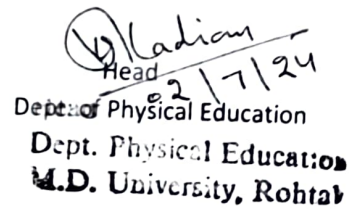 Kadian
Head
02/7/24
Dept. of Physical Education
Dept. Physical Education
M.D. University, Rohtak